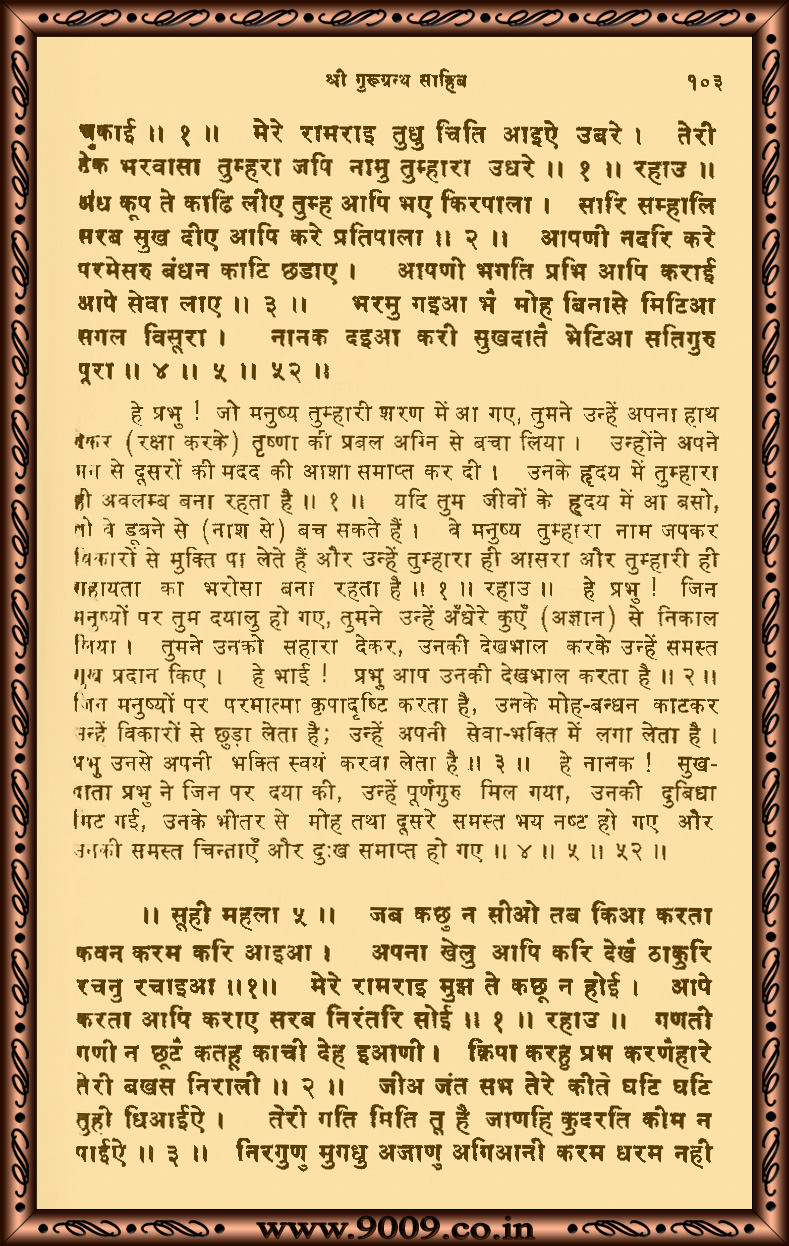 श्री गुरूग्रन्थ साहिब १०३
चुकाई ॥ १ ॥ मेरे रामराइ तुधु चिति आइऐ उबरे । तेरी
टेक भरवासा तुम्हरा जपि नामु तुम्हारा उधरे ॥ १ ॥ रहाउ ॥
अंध कूप ते काढि लीए तुम्ह आपि भए किरपाला । सारि सम्हालि
सरब सुख दीए आपि करे प्रतिपाला ॥ २ ॥ आपणी नदरि करे
परमेसरु बंधन काटि छडाए । आपणी भगति प्रभि आपि कराई
आपे सेवा लाए ॥ ३ ॥ भरमु गइआ भै मोह बिनासे मिटिआ
सगल विसूरा । नानक दइआ करी सुखदातै भेटिआ सतिगुरु
पूरा ॥ ४ ॥ ५ ॥ ५२ ॥
हे प्रभु ! जो मनुष्य तुम्हारी शरण में आ गए, तुमने उन्हें अपना हाथ
देकर (रक्षा करके) तृष्णा की प्रबल अग्नि से बचा लिया । उन्होंने अपने
मन से दूसरों की मदद की आशा समाप्त कर दी । उनके हृदय में तुम्हारा
ही अवलम्ब बना रहता है ॥ १ ॥ यदि तुम जीवों के हृदय में आ बसो,
तो वे डूबने से (नाश से) बच सकते हैं । वे मनुष्य तुम्हारा नाम जपकर
विकारों से मुक्ति पा लेते हैं और उन्हें तुम्हारा ही आसरा और तुम्हारी ही
सहायता का भरोसा बना रहता है ॥ १ ॥ रहाउ ॥ हे प्रभु ! जिन
मनुष्यों पर तुम दयालु हो गए, तुमने उन्हें अँधेरे कुएँ (अज्ञान) से निकाल
लिया । तुमने उनको सहारा देकर, उनकी देखभाल करके उन्हें समस्त
सुख प्रदान किए । हे भाई ! प्रभु आप उनकी देखभाल करता है ॥ २ ॥
जिन मनुष्यों पर परमात्मा कृपादृष्टि करता है, उनके मोह-बन्धन काटकर
उन्हें विकारों से छुड़ा लेता है; उन्हें अपनी सेवा-भक्ति में लगा लेता है ।
प्रभु उनसे अपनी भक्ति स्वयं करवा लेता है ॥ ३ ॥ हे नानक ! सुख-
दाता प्रभु ने जिन पर दया की, उन्हें पूर्णगुरु मिल गया, उनकी दुबिधा
मिट गई, उनके भीतर से मोह तथा दूसरे समस्त भय नष्ट हो गए और
उनकी समस्त चिन्ताएँ और दुःख समाप्त हो गए ॥ ४ ॥ ५ ॥ ५२ ॥
॥ सूही महला ५ ॥ जब कछु न सीओ तब किआ करता
कवन करम करि आइआ । अपना खेलु आपि करि देखै ठाकुरि
रचनु रचाइआ ॥१॥ मेरे रामराइ मुझ ते कछू न होई । आपे
करता आपि कराए सरब निरंतरि सोई ॥ १ ॥ रहाउ ॥ गणती
गणी न छूटै कतहू काची देह इआणी । क्रिपा करहु प्रभ करणैहारे
तेरी बखस निराली ॥ २ ॥ जीअ जंत सभ तेरे कीते घटि घटि
तुही धिआईऐ । तेरी गति मिति तू है जाणहि कुदरति कीम न
पाईऐ ॥ ३ ॥ निरगुणु मुगधु अजाणु अगिआनी करम धरम नही
www.9009.co.in